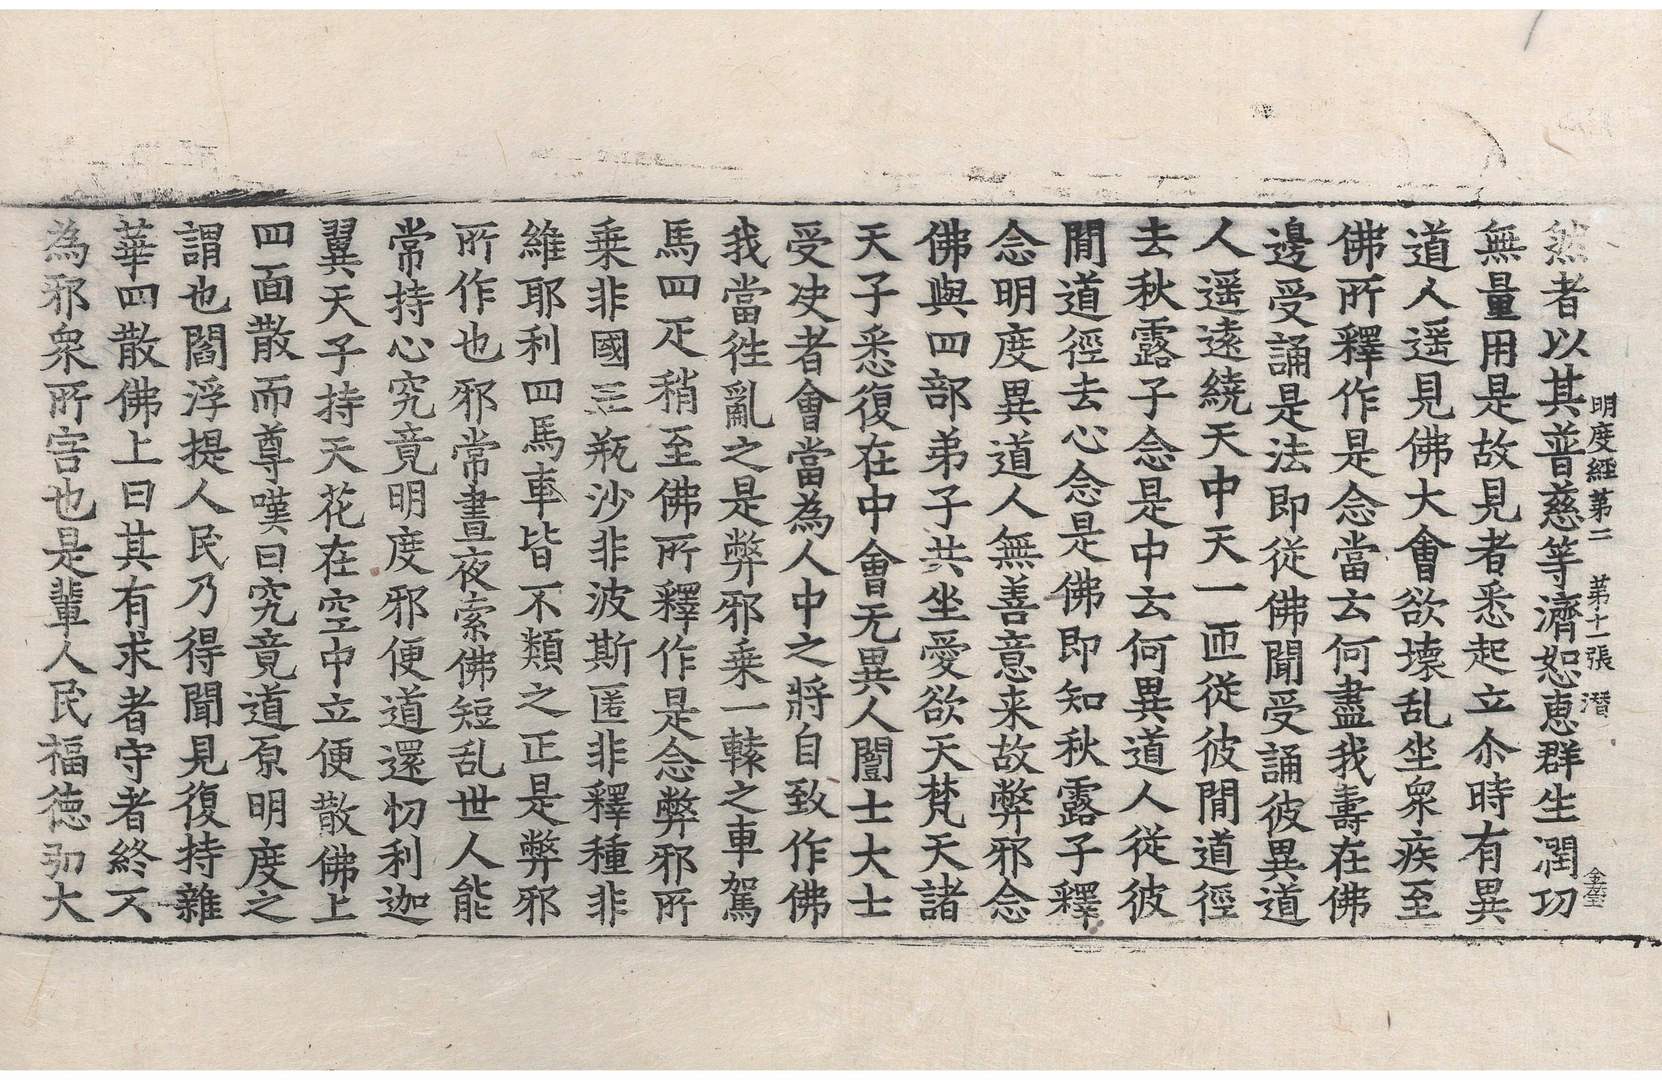 明度經第二　第十一張　潛
然者以其普慈等濟恕恵群生潤功
無量用是故見者悉起立尒時有異
道人遥見佛大會欲壞乱坐衆疾至
佛所釋作是念當云何盡我壽在佛
邊受誦是法即從佛聞受誦彼異道
人遥遠繞天中天一匝從彼間道徑
去秋露子念是中云何異道人從彼
間道徑去心念是佛即知秋露子釋
念明度異道人無善意来故弊邪念
佛與四部弟子共坐愛欲天梵天諸
天子悉復在中會无異人闓士大士
受决者會當為人中之將自致作佛
我當徃亂之是弊邪乗一轅之車駕
馬四疋稍至佛所釋作是念弊邪所
乗非國王瓶沙非波斯匿非釋種非
維耶利四馬車皆不類之正是弊邪
所作也邪常晝夜索佛短乱世人能
常持心究竟明度邪便道還忉利迦
翼天子持天花在空中立便散佛上
四面散而尊嘆曰究竟道原明度之
謂也閻浮提人民乃得聞見復持雜
華四散佛上曰其有求者守者終不
為邪衆所害也是輩人民福德㓛大